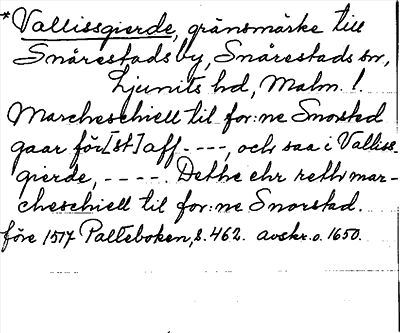 *Vallissgierde, gränsmärke till
Snårestads by, Snårestads sn,
Ljunits hd, Malm. l.
Marcheschiell til for:ne Snorsted
gaar för[st] aff ----, och saa i Valliss-
gierde, ---- Dethe ehr reth mar-
cheschiell til for:ne Snorstad.
före 1517 Palteboken, s. 462. avskr. o. 1650.